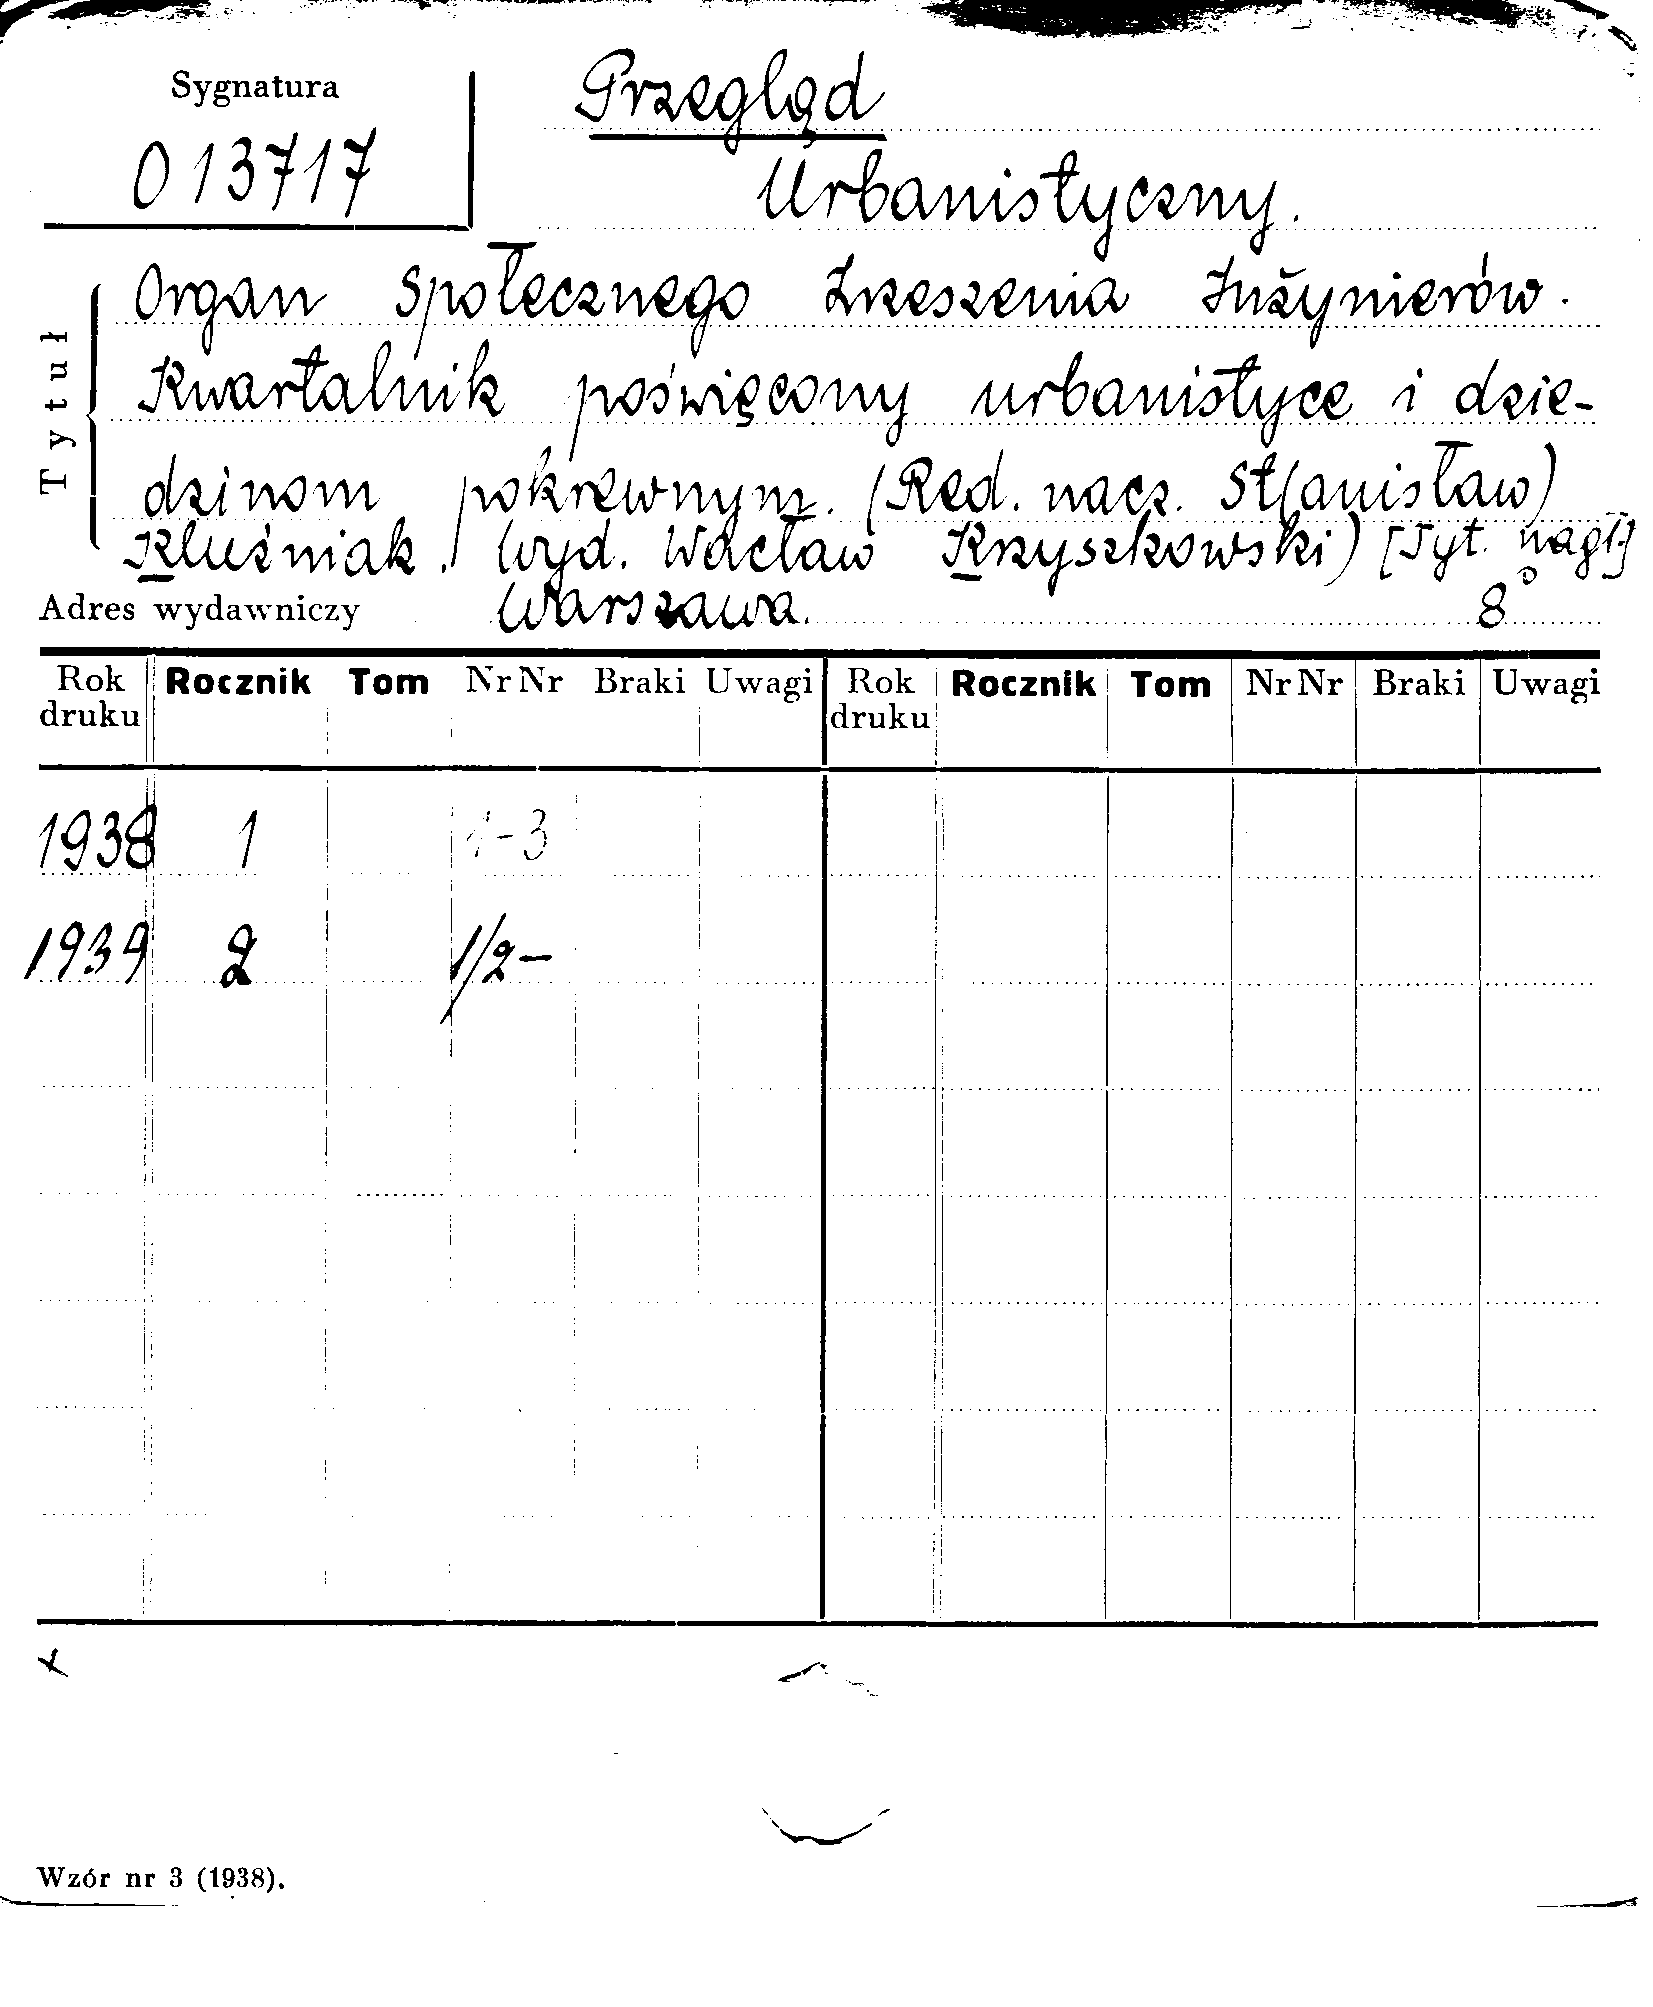 Sygnatura
013717
Przegląd
Urbanistyczny.
Tytuł
Organ Społecznego Zrzeszenia Inżynierów.
Kwartalnik poświęcony urbanistyce i dzie-
dzinom pokrewnym. (Red. nacz. St(anisław)
Kluźniak. Wyd. Wacław Krzyszkowski) [Tyt. nagł.]
Adres wydawniczy Warszawa. 8°
Rok druku Rocznik Tom Nr Nr Braki Uwagi Rok druku Rocznik Tom Nr Nr Braki Uwagi
1938 1 1-3
1939 2 1/2-
x
Wzór nr 3 (1938).